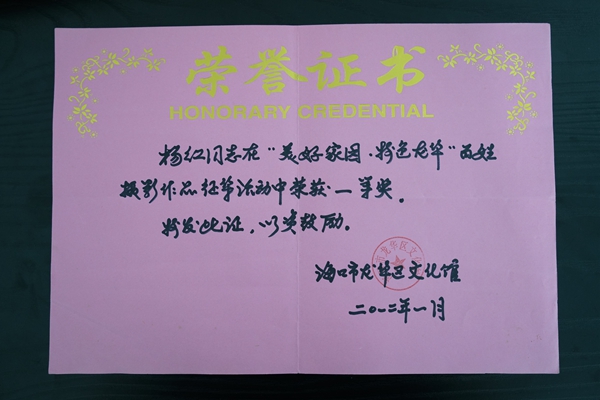 荣誉证书
HONORARY CREDENTIAL
杨红同志在“美好家园·特色龙华”百姓
摄影作品征集活动中荣获一等奖。
特发此证,以资鼓励。
海口市龙华区文化馆
二〇一二年一月